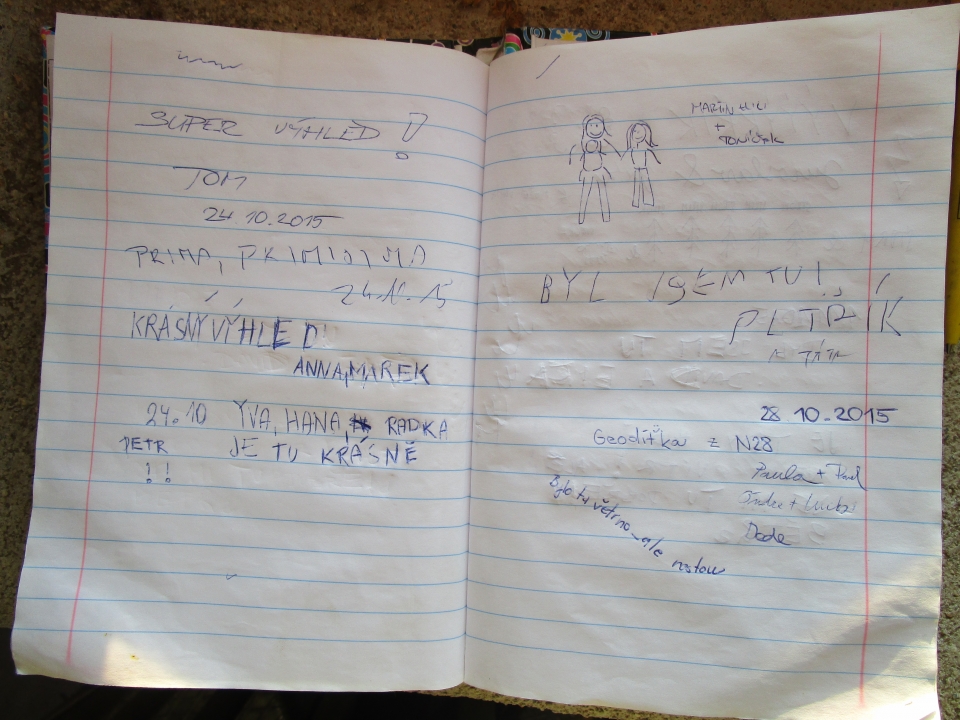 SUPER VÝHLED!
TOM
24.10.2015
PRIMA,
24.10.15
KRÁSNÝ VÝHLED!
ANNA, MAREK
24.10 YVA, HANA, RADKA
PETR JE TU KRÁSNĚ
!!
MARTIN
+
TONIČEK
BYL JSEM TU!,
PETRÍK
A TÁTA
28 10.2015
Geodíťka z N28
Pavla + Pavel
Dada
Bylo tu větrno, ale